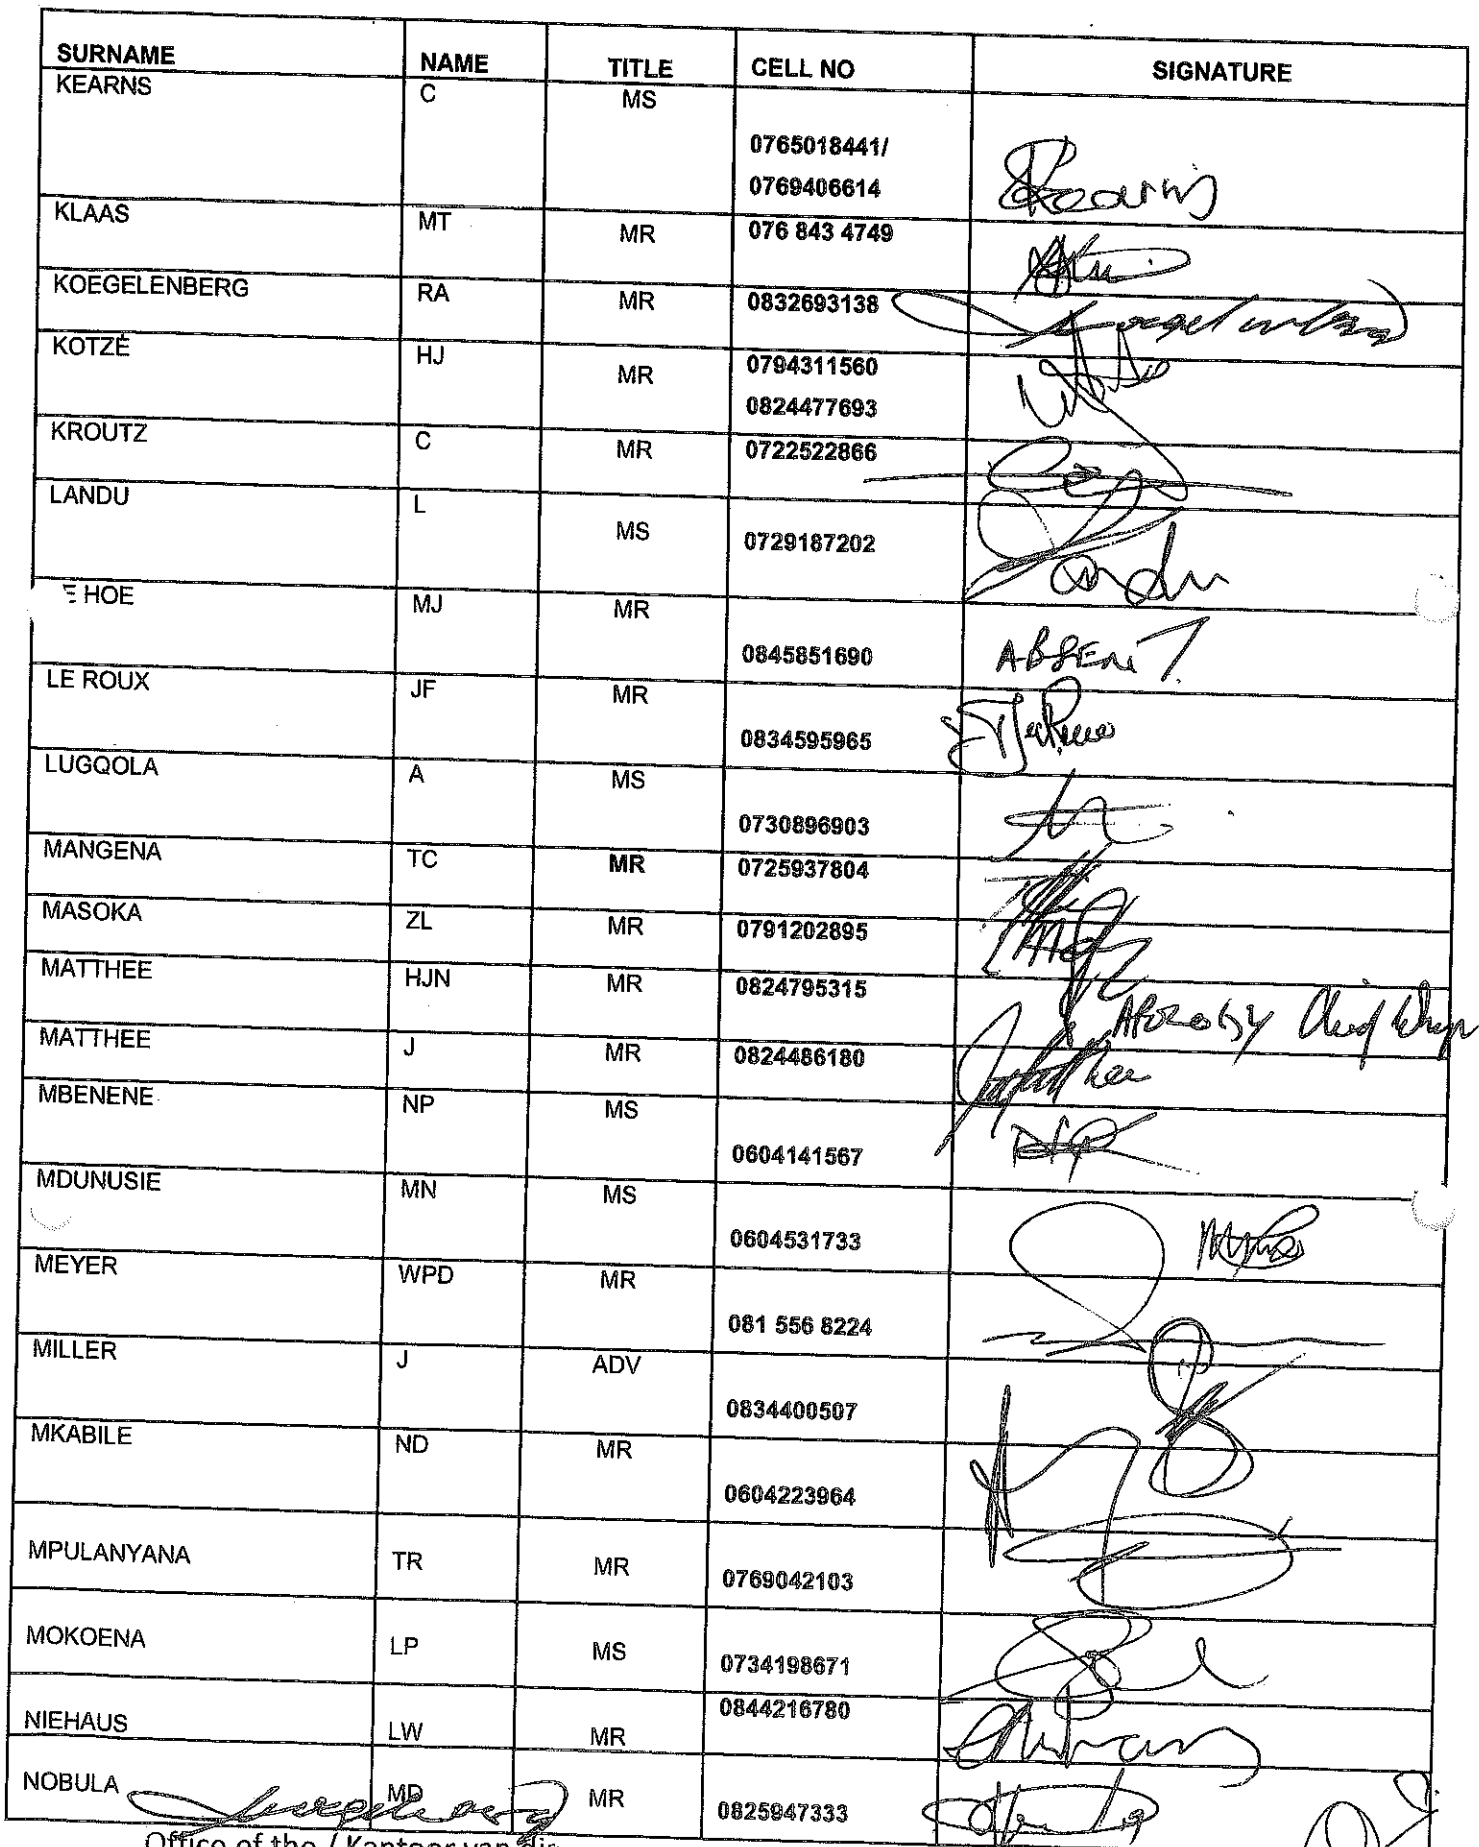 SURNAME NAME TITLE CELL NO SIGNATURE
KEARNS C MS 0765018441/
0769406614
KLAAS MT MR 076 843 4749
KOEGELENBERG RA MR 0832693138
KOTZÉ HJ MR 0794311560
0824477693
KROUTZ C MR 0722522866
LANDU L MS 0729187202
E HOE MJ MR 0845851690 ABSENT
LE ROUX JF MR 0834595965
LUGQOLA A MS 0730896903
MANGENA TC MR 0725937804
MASOKA ZL MR 0791202895
MATTHEE HJN MR 0824795315
MATTHEE J MR 0824486180
MBENENE NP MS 0604141567
MDUNUSIE MN MS 0604531733
MEYER WPD MR 081 556 8224
MILLER J ADV 0834400507
MKABILE ND MR 0604223964
MPULANYANA TR MR 0769042103
MOKOENA LP MS 0734198671
NIEHAUS LW MR 0844216780
NOBULA MD MR 0825947333
Office of the / Kantoor van die